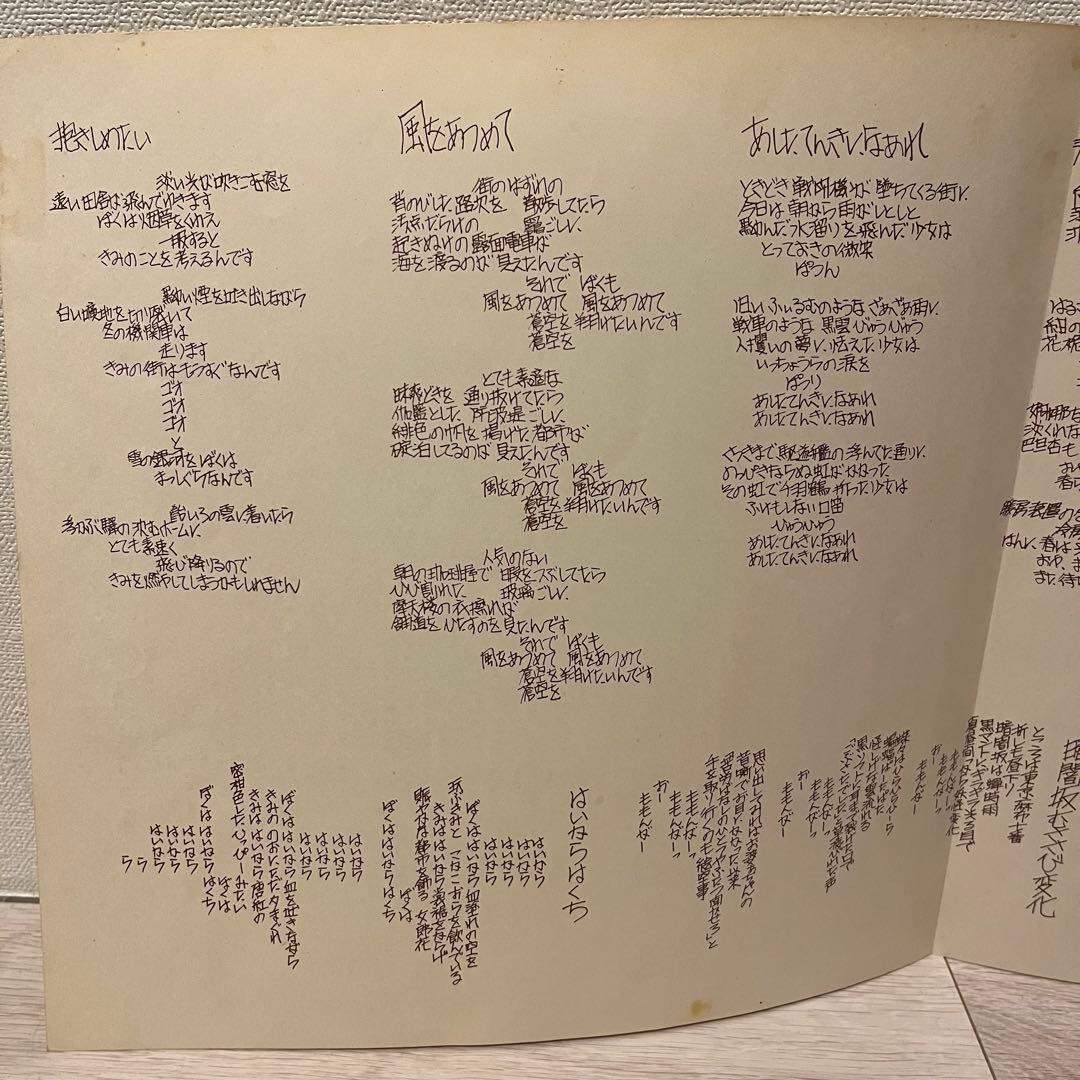 抱きしめたい
淡い光が吹きこむ窓を
遠い田舎が飛んでゆきます
ぼくは烟草をくわえ
一服すると
きみのことを考えるんです
黝い煙を吐き出しながら
白い曠地を切り裂いて
冬の機関車は
走ります
きみの街はもうすぐなんです
ゴオ
ゴオ
ゴオ
と
雪の銀河をぼくは
まっしぐらなんです
飴いろの雲に着いたら
浮かぶ驛の沈むホームに
とても素速く
飛び降りるので
きみを燃やしてしまうかもしれません
風をあつめて
街のはずれの
背のびした路次を 散歩してたら
汚点だらけの 靄ごしに
起きぬけの露面電車が
海を渡るのが 見えたんです
それで ぼくも
風をあつめて 風をあつめて
蒼空を翔けたいんです
蒼空を
とても素適な
昧爽どきを 通り抜けてたら
伽藍とした 防波堤ごしに
緋色の帆を掲げた都市が
碇泊してるのが 見えたんです
それで ぼくも
風をあつめて 風をあつめて
蒼空を翔けたいんです
蒼空を
人気のない
朝の珈琲屋で 暇をつぶしてたら
ひび割れた 玻璃ごしに
摩天楼の衣擦れが
舗道をひたすのを見たんです
それで ぼくも
風をあつめて 風をあつめて
蒼空を翔けたいんです
蒼空を
あしたてんきになあれ
ときどき戦闘機が 墜ちてくる街に
今日は朝から雨がしとしと
黝んだ水溜りを飛んだ少女は
とっておきの微笑
ぽつん
旧いふぃるむのような ざあざあ雨に
戦車のような 黒雲びゅうびゅう
人攫いの夢に怯えた少女は
いっちょうらの涙を
ぽつり
あしたてんきになあれ
あしたてんきになあれ
さっきまで駆逐艦の浮んでた通りに
のっぴきならぬ虹がかかった
その虹で千羽鶴 折った少女は
ふけもしない口笛
ひゅうひゅう
あしたてんきになあれ
あしたてんきになあれ
暗闇坂むささび変化
ところは東京麻布十番
折しも昼下り
暗闇坂は蝉時雨
黒マントにギラギラ光る目で
真昼間から妖怪変化
ももんがーっ
ももんがーっ
おー
ももんがー
ももんがーっ
ももんがーっ
おー
ももんがー
思い出してみればお婆あちゃんの
昔噺でお目にかかって以来
手を取りゆくのも絵空事
ももんがーっ
ももんがーっ
おー
ももんがー
はいからはくち
はいから
はいから
はいから
はいから
ぼくははいから 血塗れの空を
玩ぶきみと こかこおらを飲んでいる
きみははいから 裳裾をからげ
賑やかな都市を飾る 女郎花
ぼくは
ぼくははいからはくち
はいから
はいから
はいから
はいから
ぼくははいから 血を吐きながら
きみののおだただ夕まぐれ
きみははいから 唐紅の
蜜柑色したひっぴーみたい
ぼくは
ぼくははいからはくち
はいから
はいから
はいから
ら
ら